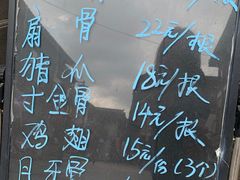 扇骨 22元/根
脂爪 18元/根
寸金骨 14元/根
鸡翅 15元/份(3个)
月牙骨